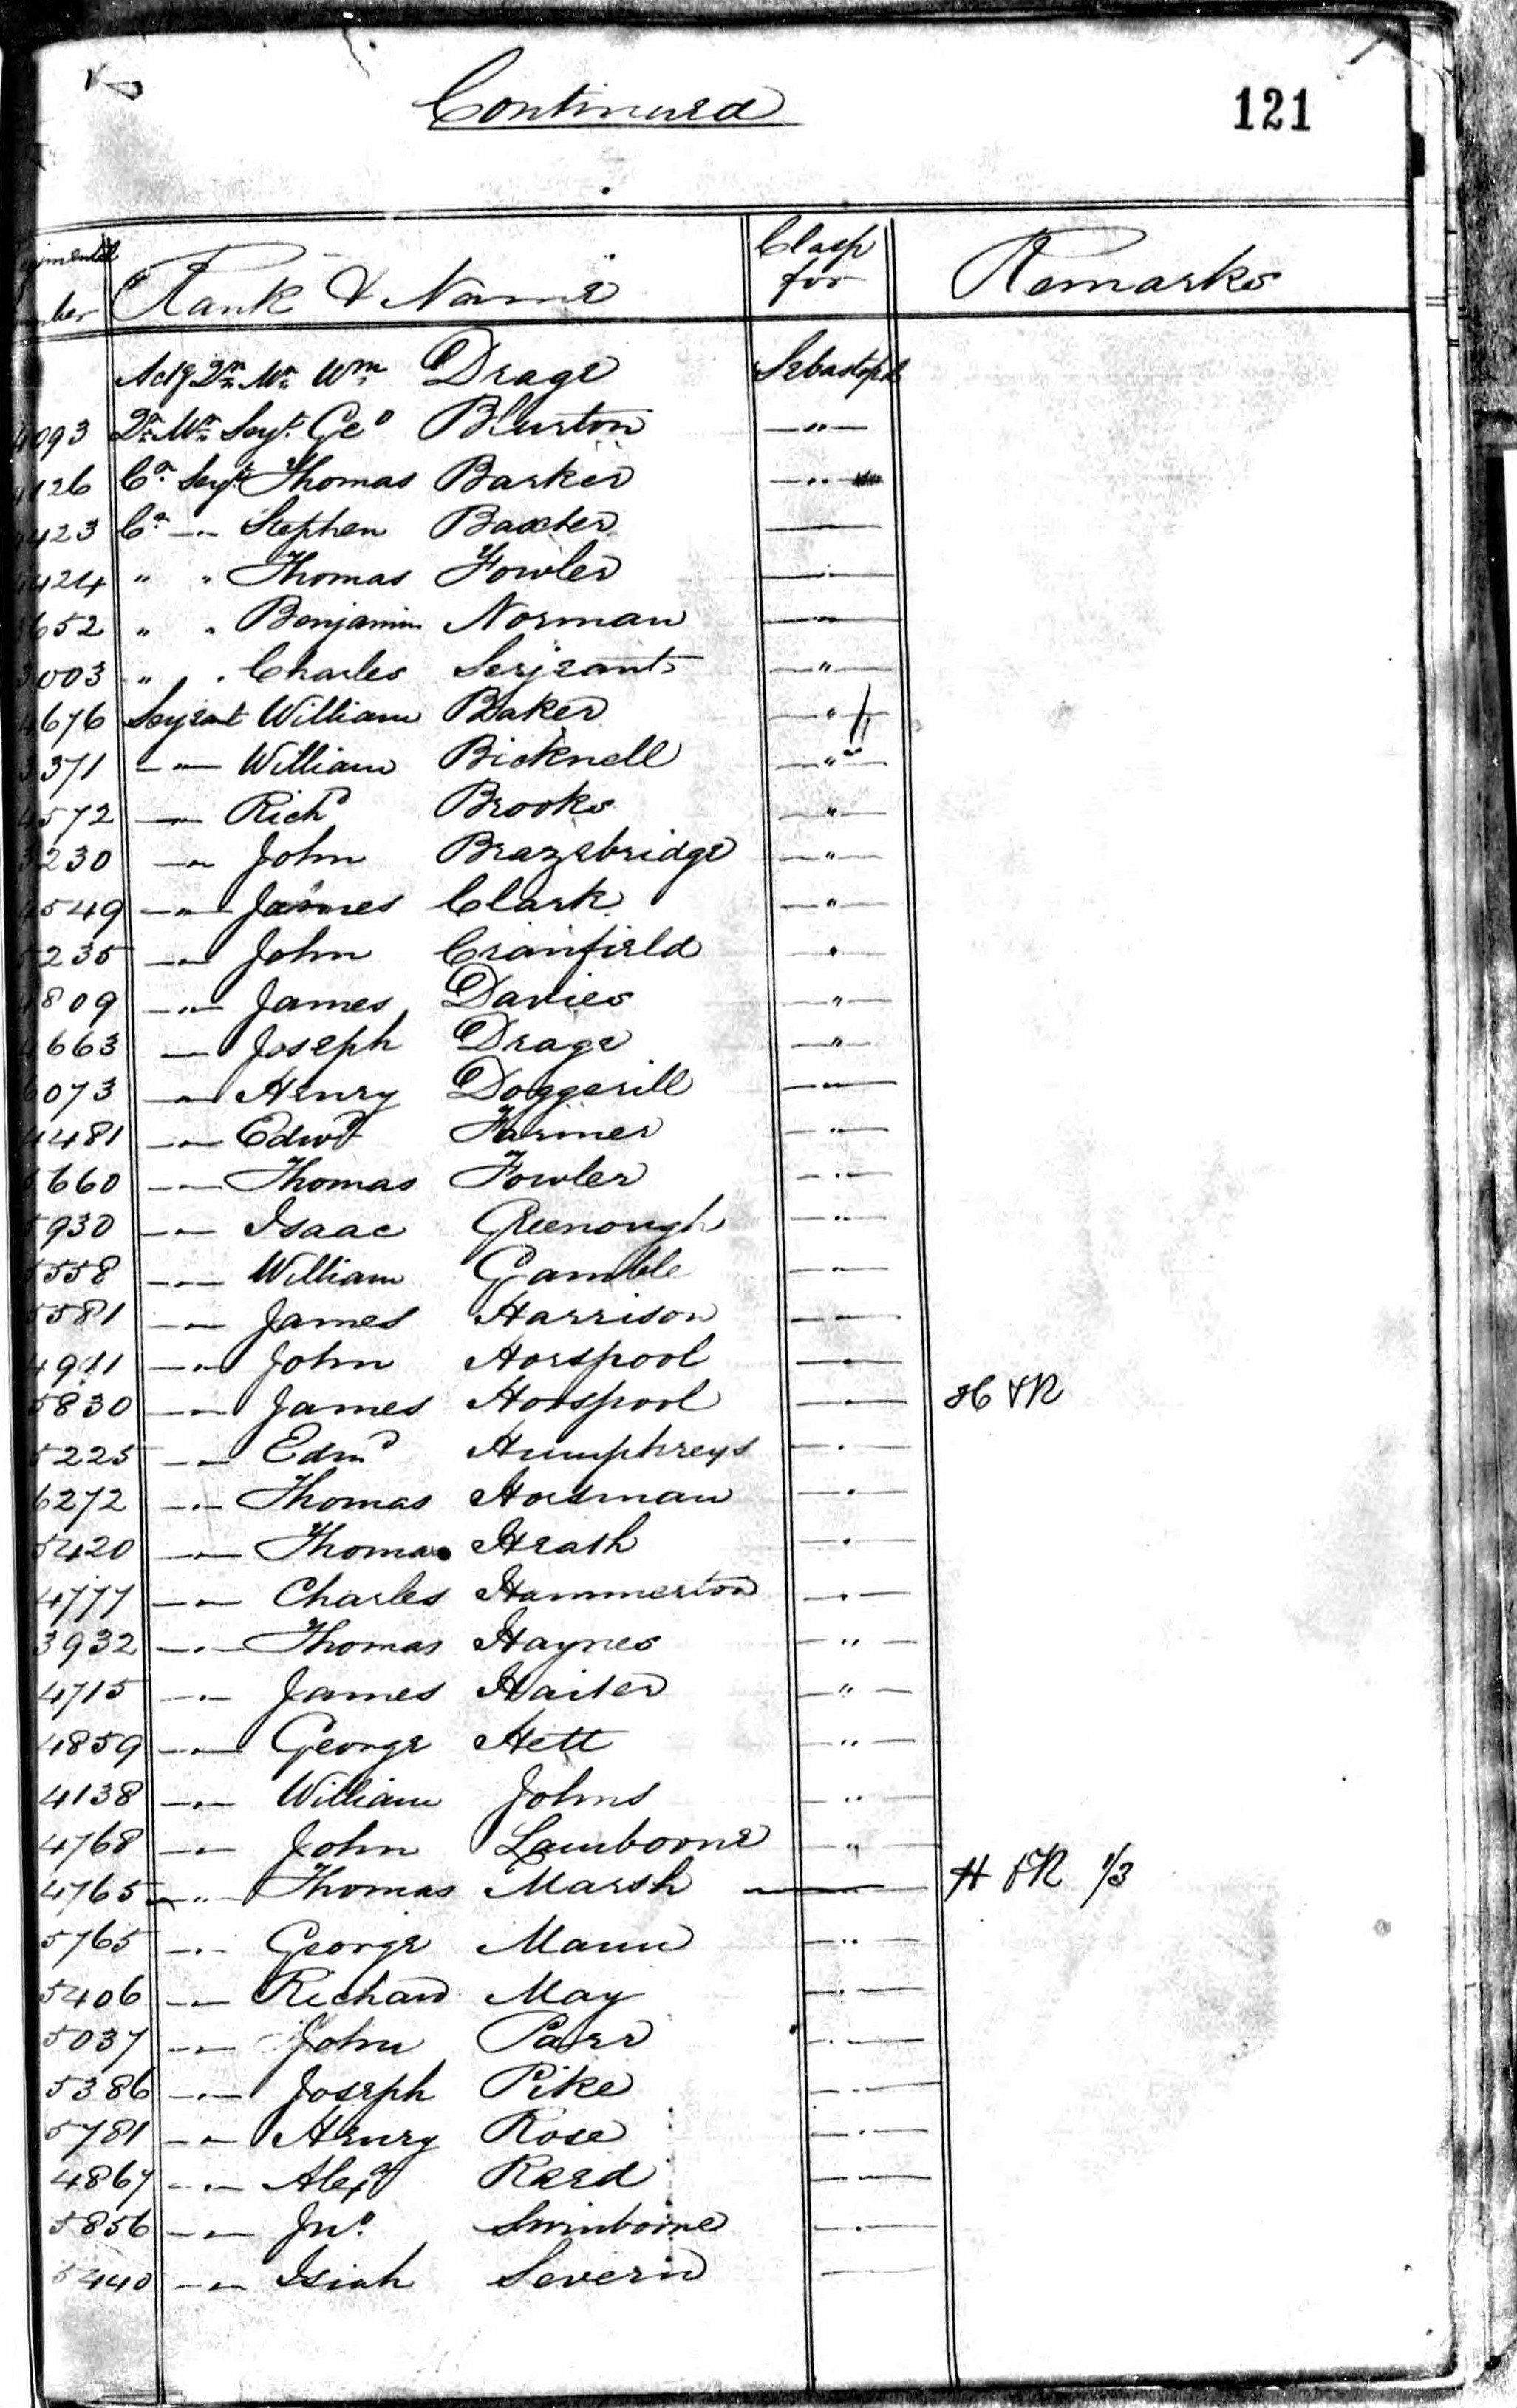 Continued
121
Rank & Name Clasp for Remarks
Actg Qr. Mr. Wm. Drage Sebastopol
4093 Qr. Mr. Serjt. Geo Blurton —"—
4126 Cr. Serjt. Thomas Barker —"—
4423 Cr. —"— Stephen Baxter —"—
4424 " " Thomas Fowler —"—
3652 " " Benjamin Norman —"—
3003 " " Charles Serjeant —"—
4676 Serjeant William Baker —"—
3371 —"— William Bicknell —"—
4572 —"— Richd Brooks —"—
3230 —"— John Brazebridge —"—
4549 —"— James Clark —"—
5235 —"— John Cranfield —"—
4809 —"— James Davies —"—
4663 —"— Joseph Drage —"—
6073 —"— Henry Doggerill —"—
4481 —"— Edwd Farmer —"—
660 —"— Thomas Fowler —"—
5930 —"— Isaac Greenough —"—
5558 —"— William Gamble —"—
5581 —"— James Harrison —"—
4911 —"— John Horspool —"—
5830 —"— James Horspool —"— H &R
5225 —"— Edmd Humphreys —"—
6272 —"— Thomas Horsman —"—
5420 —"— Thomas Heath —"—
4777 —"— Charles Hammerton —"—
3932 —"— Thomas Haynes —"—
4715 —"— James Haiter —"—
4859 —"— George Hett —"—
4138 —"— William Johns —"—
4768 —"— John Lambourne —"—
4765 —"— Thomas Marsh —"— H &R 1/3
5765 —"— George Mann —"—
5406 —"— Richard May —"—
5037 —"— John Parr —"—
5386 —"— Joseph Pike —"—
5781 —"— Henry Rose —"—
4867 —"— Alexr Reed —"—
5856 —"— Jno. Swinborne —"—
5440 —"— Isiah Severn —"—